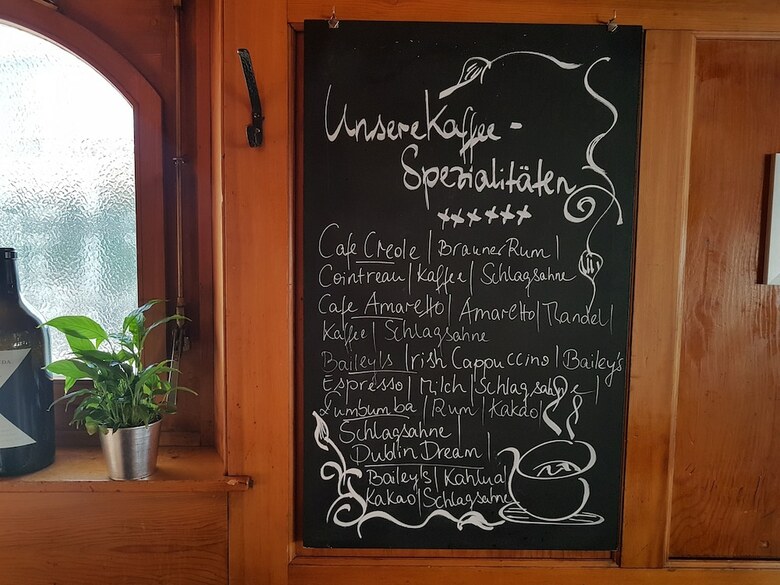 Unsere Kaffee-
Spezialitäten
Cafe Creole | Brauner Rum |
Cointreau | Kaffee | Schlagsahne
Cafe Amaretto | Amaretto | Mandel |
Kaffee | Schlagsahne
Bailey's Irish Cappuccino | Bailey's
Espresso | Milch | Schlagsahne |
Lumbumba | Rum | Kakao |
Schlagsahne |
Dublin Dream |
Bailey's | Kahlua |
Kakao | Schlagsahne